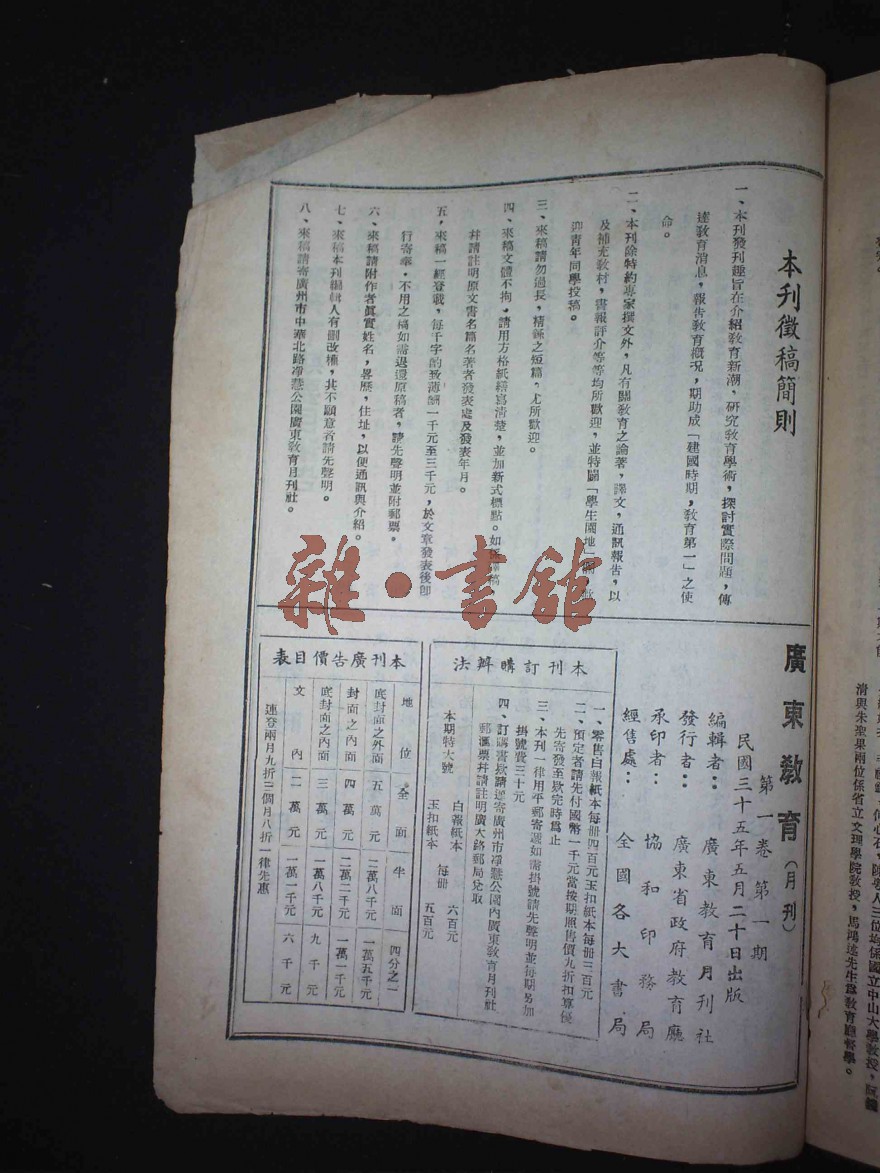 本刊徵稿簡則
一、本刊發刊趣旨在介紹教育新潮，研究教育學術，探討實際問題，傳
達教育消息，報告教育概況，期助成「建國時期，教育第一」之使
命。
二、本刊除特約專家撰文外，凡有關教育之論著，譯文，通訊報告，以
及補充教材，書報評介等等均所歡迎，並特闢「學生園地」
迎青年同學投稿。
三、來稿請勿過長，精鍊之短篇，尤所歡迎。
四、來稿文體不拘，請用方格紙繕寫清楚，並加新式標點。如
幷請註明原文書名篇名著者發表處及發表年月。
五，來稿一經登載，每千字酌致薄酬一千元至三千元，於文章發表後卽
行寄奉，不用之稿如需退還原稿者，請先聲明並附郵票。
六、來稿請附作者眞實姓名，畧歷，住址，以便通訊與介紹。
七、來稿本刊編輯人有刪改權，其不願意者請先聲明。
八、來稿請寄廣州市中華北路淨慧公園廣東教育月刊社。
廣東教育（月刊）
第一卷第一期
民國三十五年五月二十日出版
編輯者：廣東教育月刊社
發行者：廣東省政府教育廳
承印者：協和印務局
經售處：全國各大書局
本刊訂購辦法
一、零售白報紙本每冊四百元玉扣紙本每冊三百元
二、預定者請先付國幣一千元當按期照售價九折扣算優
先寄發至欵完時爲止
三、本刊一律用平郵寄遞如需掛號請先聲明並每期另加
掛號費三十元
四、訂購書欵請逕寄廣州市淨慧公園內廣東教育月刊社
郵滙票幷請註明廣大路郵局兌取
本期特大號 白報紙本 每冊 六百元
玉扣紙本 五百元
本刊廣告價目表
地位 全面 半面 四分之一
底封面之外面 五萬元 二萬八千元 一萬五千元
封面之內面 四萬元 二萬二千元 一萬一千元
底封面之內面 三萬元 一萬八千元 九千元
文內 二萬元 一萬一千元 六千元
連登兩月九折三個月八折一律先惠
雜·書館
清與朱聖果兩位係省立文理學院教授，馬鴻述先生爲教育廳督學。